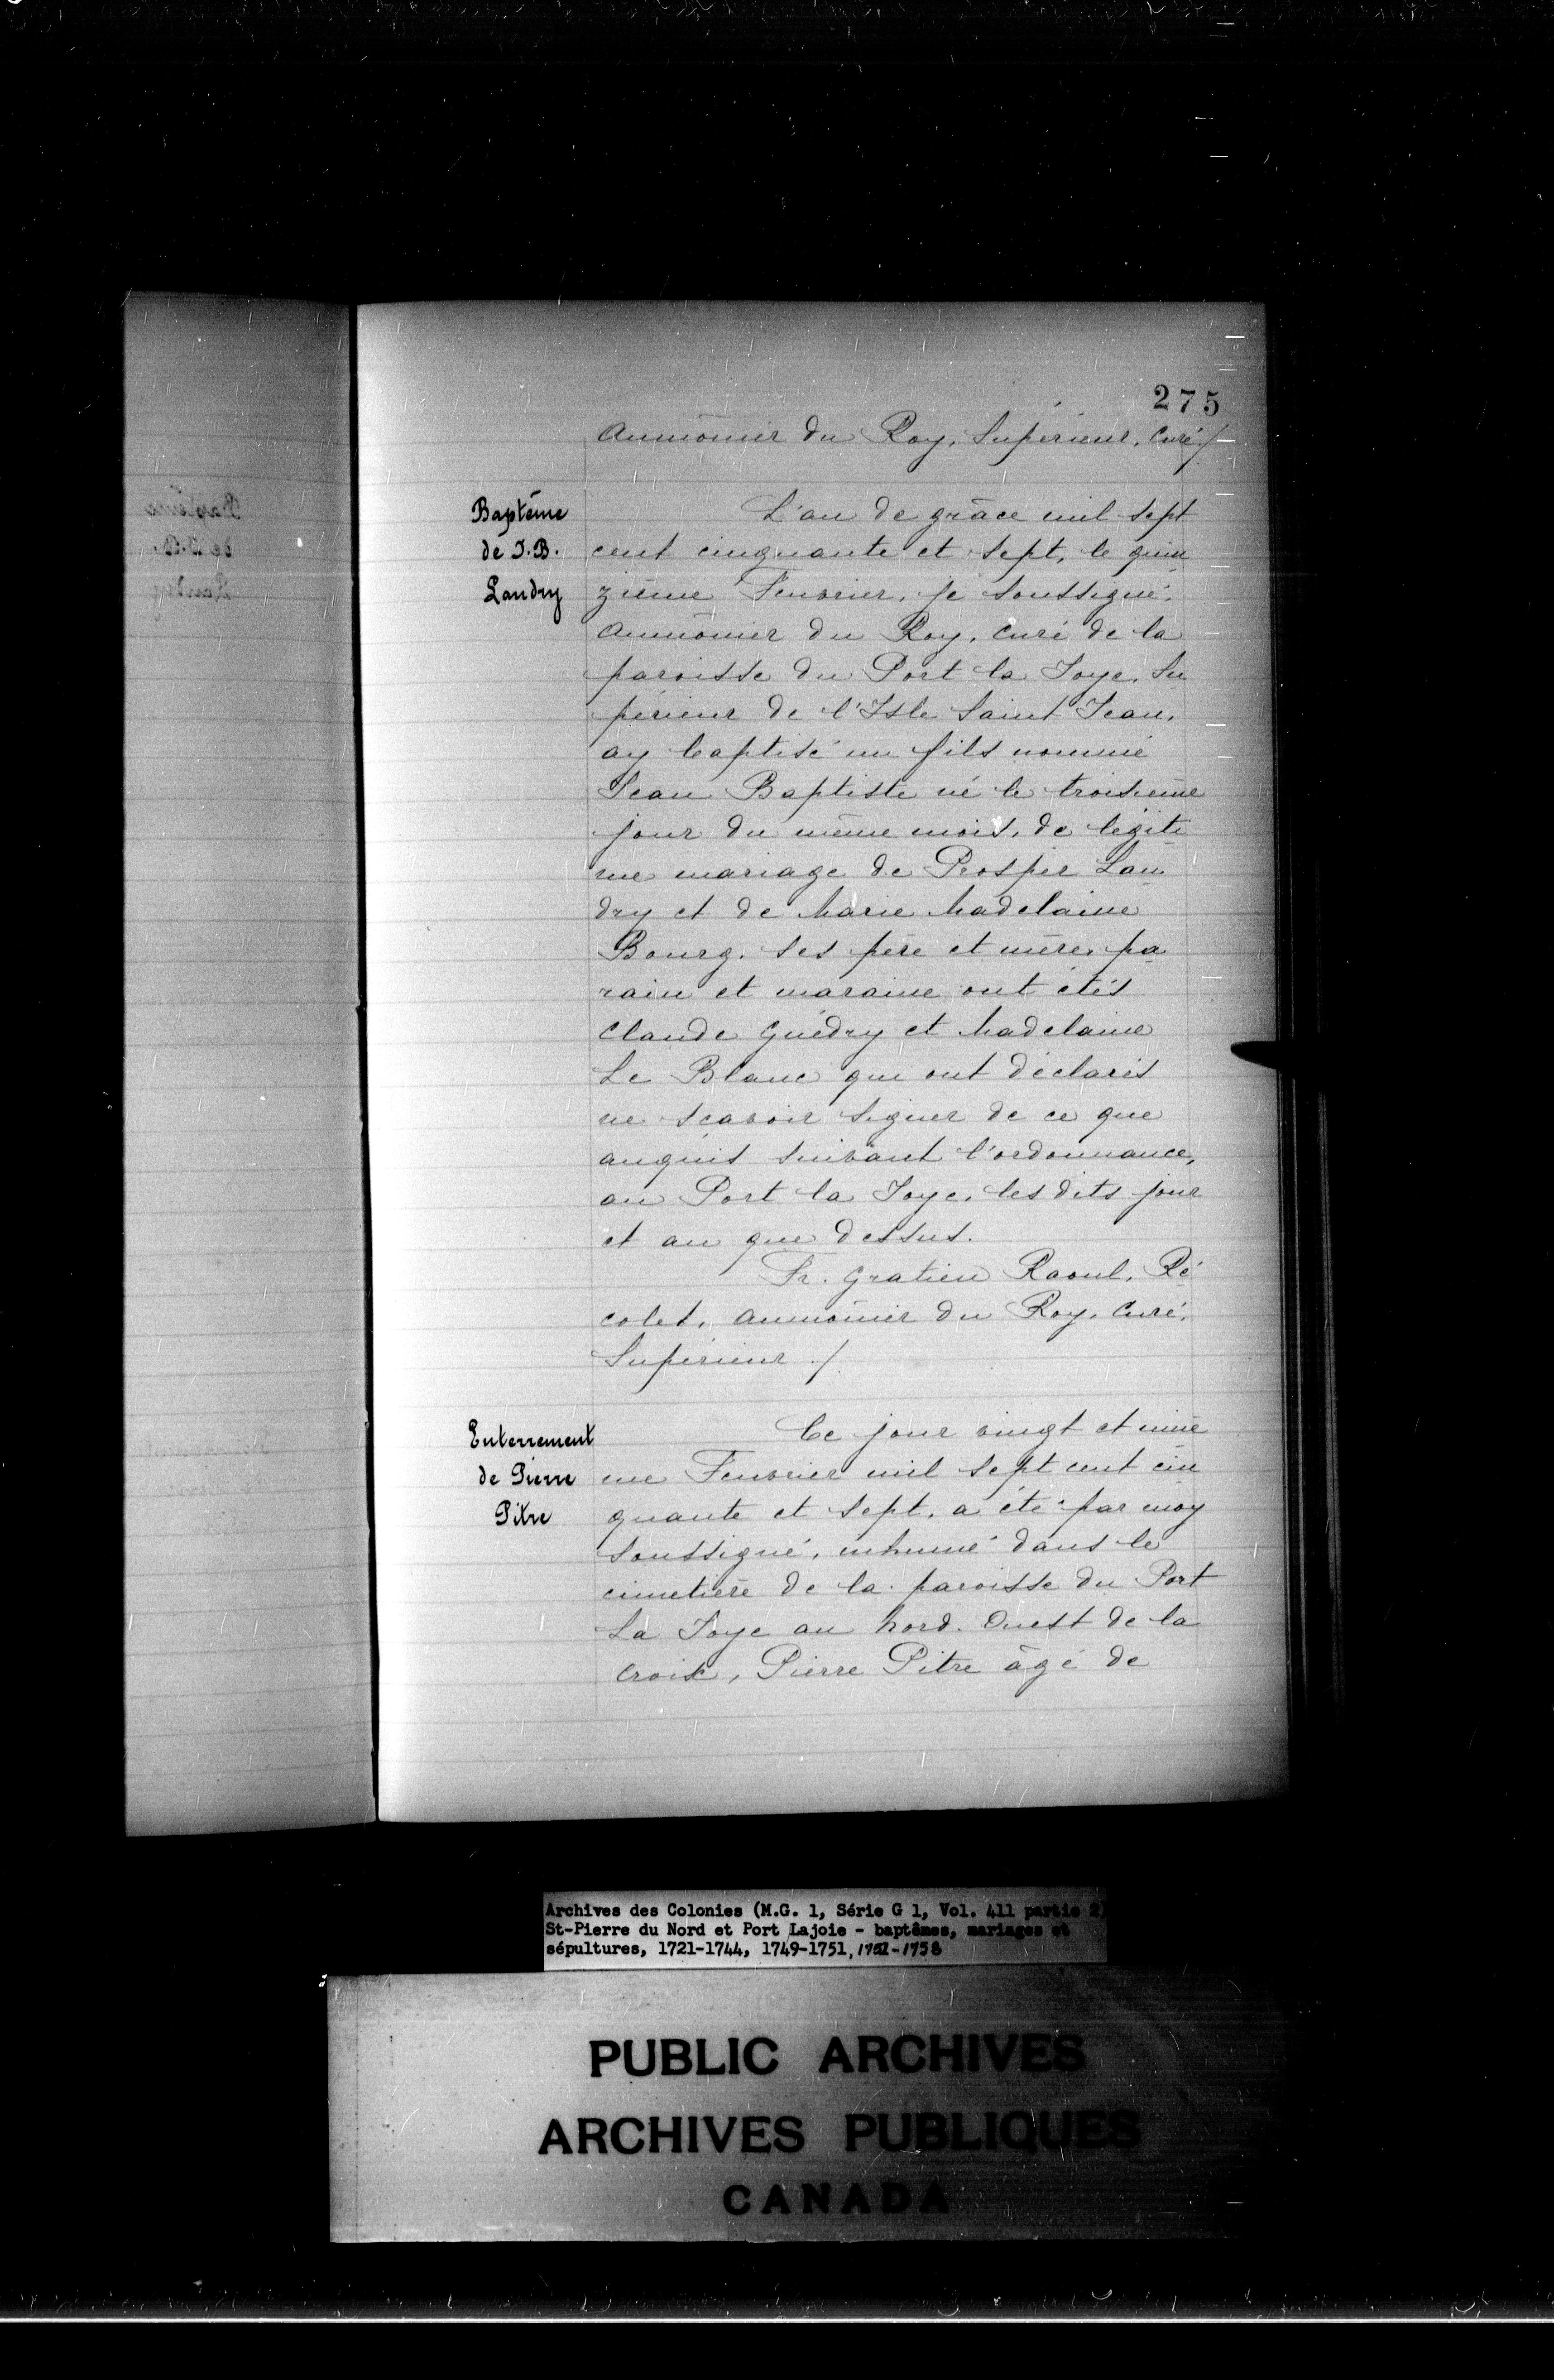 275
aumônier du Roy, Supérieur, Curé /
Baptême
de J.B.
Landry
L'an de grâce mil sept
cent cinquante et sept, le quin
zième Feuvrier, je soussigné,
aumônier du Roy, curé de la
paroisse du Port la Joye, Su
périeur de l'Isle Saint Jean,
ay baptisé un fils nommé
Jean Baptiste né le troisième
jour du même mois, de légiti
me mariage de Prosper Lan
dry et de Marie Madelaine
Bourg, ses père et mère, pa
rain et maraine ont étés
Claude Guédry et Madelaine
Le Blanc qui ont déclarés
ne scavoir signer de ce que
anquis suivant l'ordonnance,
au Port la Joye, les dits jour
et an que dessus.
Fr. Gratien Raoul, Ré
colet, aumônier du Roy, Curé,
Supérieur /
Enterrement
de Pierre
Pitre
Ce jour vingt et uniè
me Feuvrier mil sept cent cin
quante et sept, a été par moy
soussigné, inhumé dans le
cimetière de la paroisse du Port
La Joye au Nord. Ouest de la
croix, Pierre Pitre âgé de
Archives des Colonies (M.G. 1, Série G 1, Vol. 411 partie 2)
St-Pierre du Nord et Port Lajoie - baptêmes, mariages et
sépultures, 1721-1744, 1749-1751, 1752-1758
PUBLIC ARCHIVES
ARCHIVES PUBLIQUES
CANADA